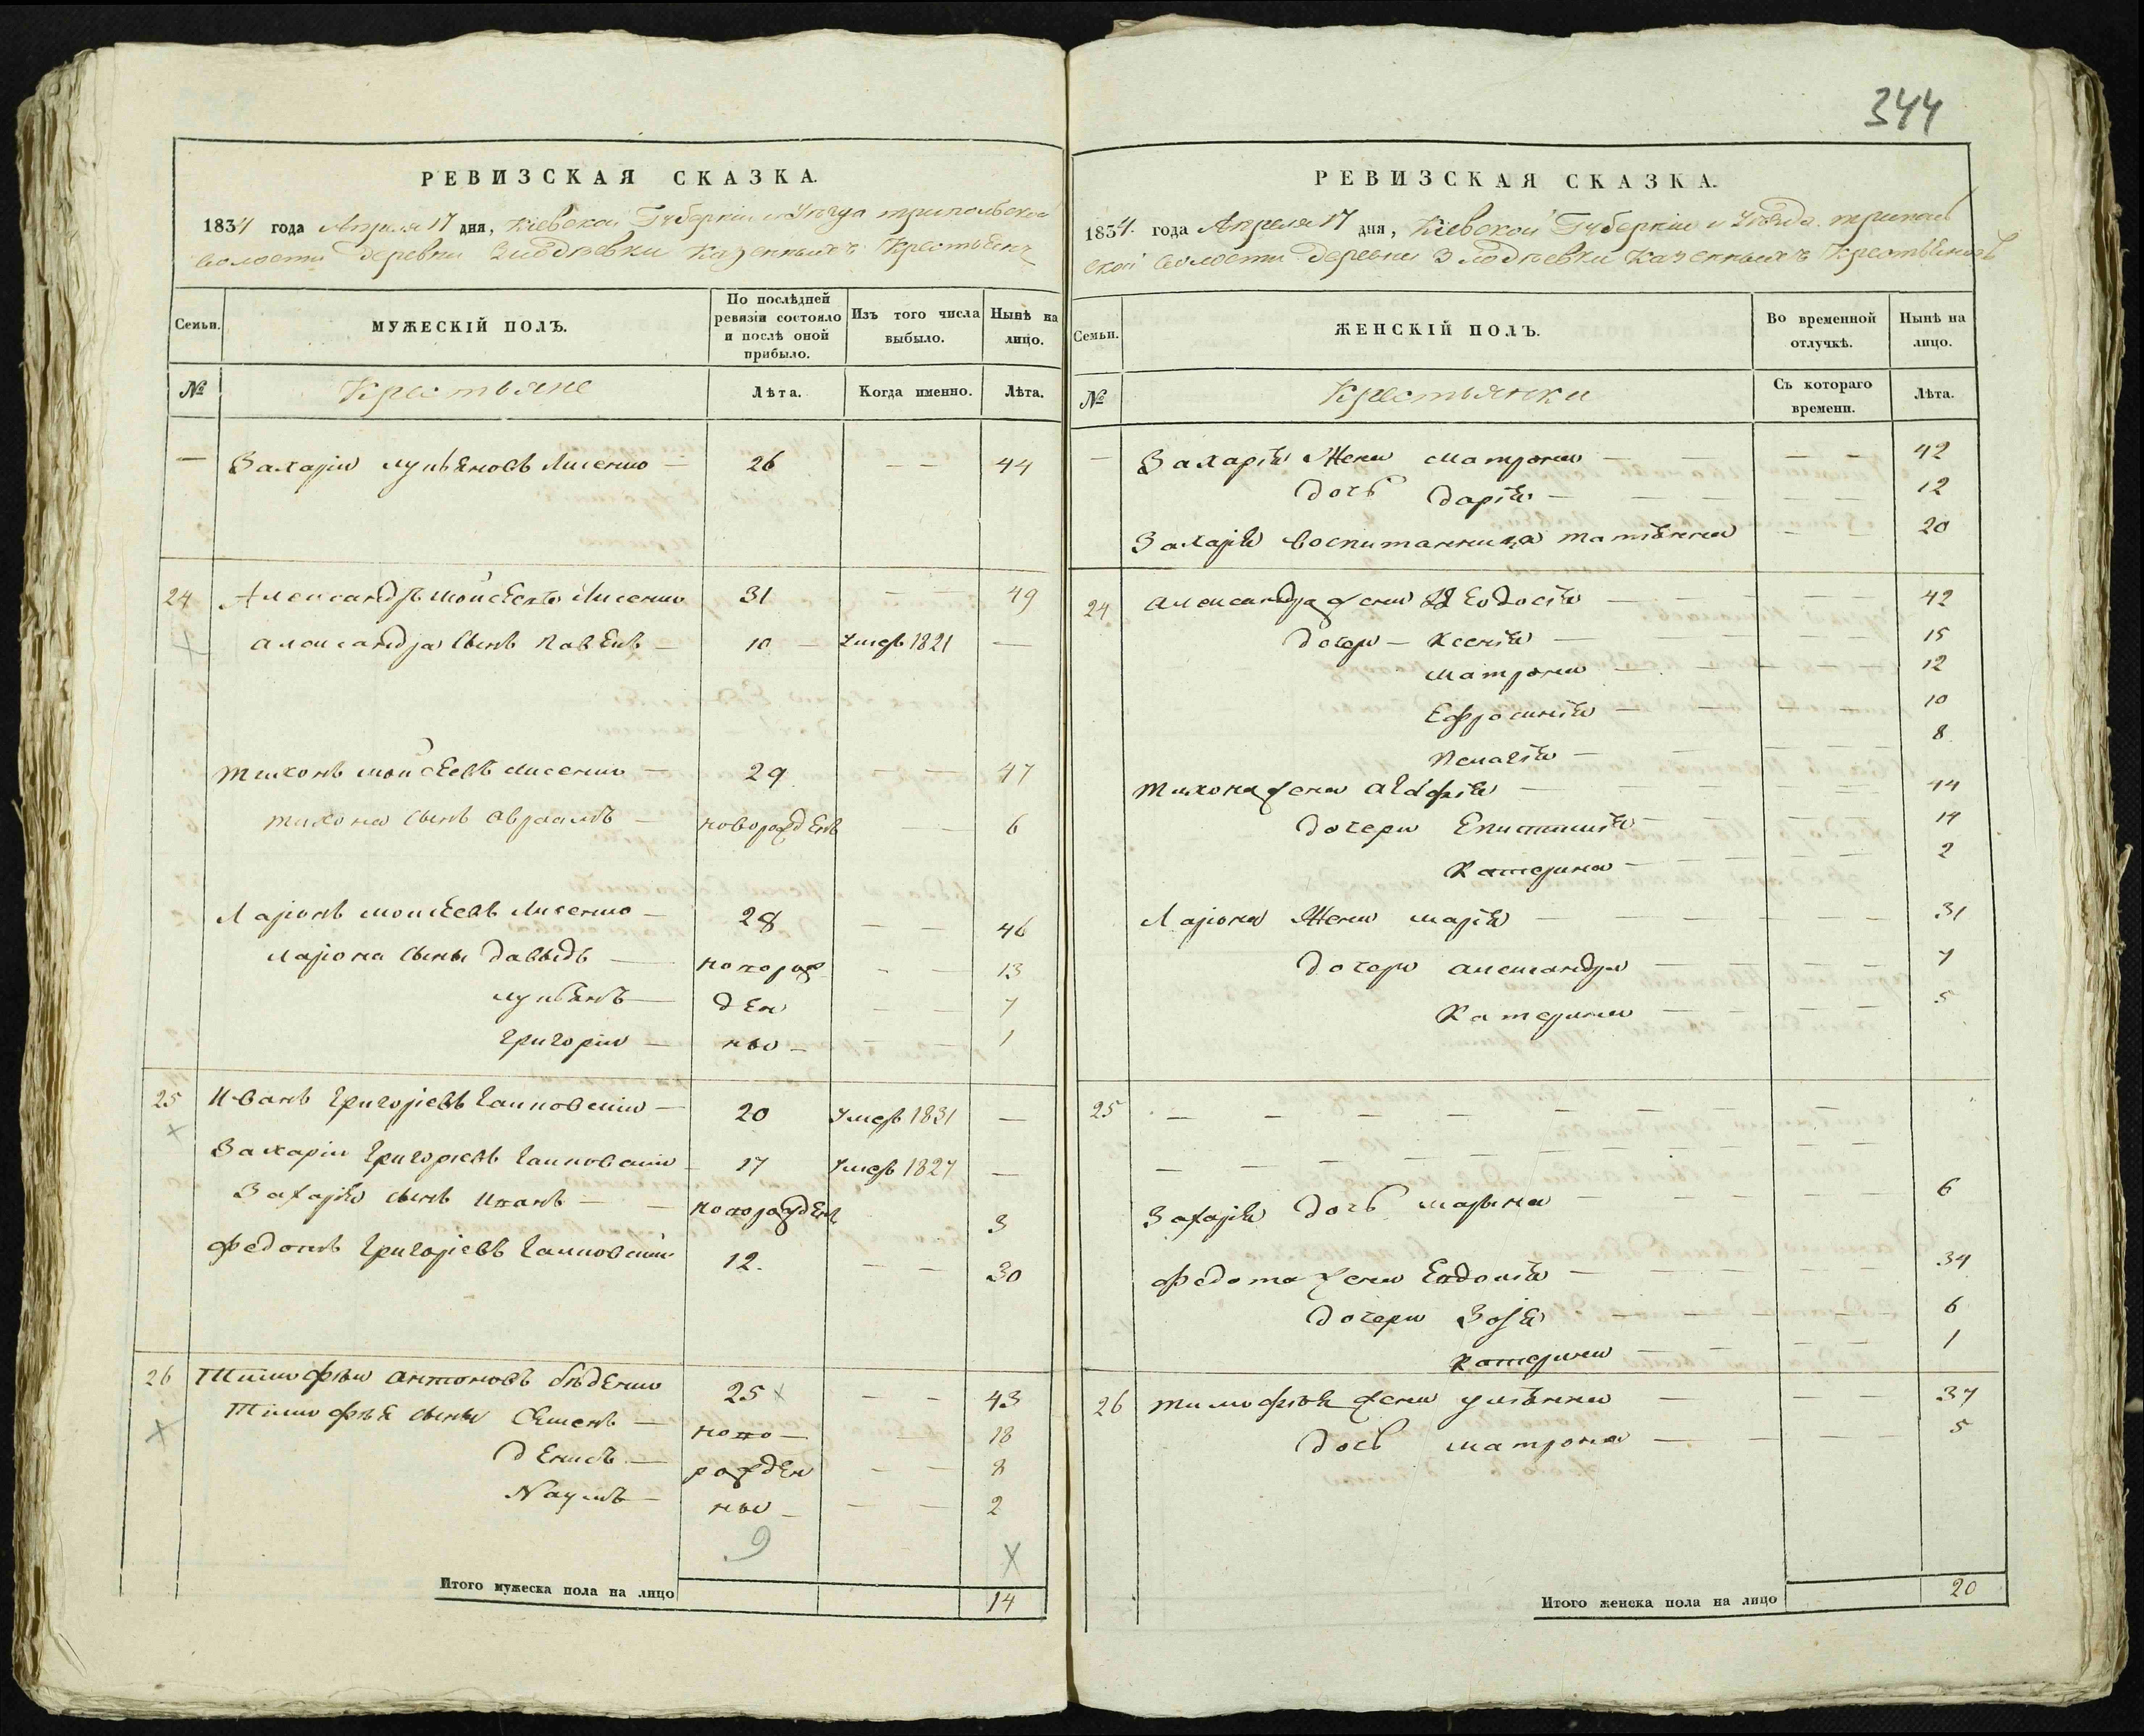 344
РЕВИЗСКАЯ СКАЗКА.
1834 года Апреля 17 дня, Кіевской Губерніи и Уезда трипольской
волости деревни Злодѣевки Казенныхъ Крестьянъ
Семьи.
МУЖЕСКІЙ ПОЛЪ.
По послѣдней ревизіи состояло и послѣ оной прибыло.
Изъ того числа выбыло.
Нынѣ на лицо.
№
Крестьяне
Лѣта.
Когда именно.
Лѣта.
— Захарій лукьяновъ Лисенко — 26 — — 44
24 Александръ мойсеевъ Лисенко 31 — — 49
александра сынъ Павелъ — 10 — Умеръ 1821 —
тихонъ мойсеевъ лисенко — 29 — — 47
тихона сынъ авраамъ — новорожденъ — — 6
Ларіонъ мойсеевъ Лисенко — 28 — — 46
ларіона сыны давыдъ — новорож — — 13
лукьянъ — ден — — 7
григорій — ны — — — 1
25 Иванъ григоріевъ 20 Умеръ 1831 —
Захарій григоріевъ 17 Умеръ 1827 —
Захарія сынъ Иванъ — — новорожденъ 3
федотъ григоріевъ 12. — — 30
26 Тимофѣй антоновъ бѣденко 25 — — 43
Тимофѣя сыны Семенъ — ново — — 18
денисъ — рожден — — 8
Наумъ — ны — — — 2
9
Итого мужеска пола на лицо 14
РЕВИЗСКАЯ СКАЗКА.
1834. года Апреля 17 дня, Кіевской Губерніи и Уѣзда триполь
ской волости деревни Злодѣевки Казенныхъ Крестьянъ
Семьи.
ЖЕНСКІЙ ПОЛЪ.
Во временной отлучкѣ.
Нынѣ на лицо.
№
Крестьянки
Съ котораго времени.
Лѣта.
— Захарія Жена матрона — — — 42
дочь дарія — — — — — 12
Захарія воспитанница татіянна — — 20
24 александра жена Ѳеодосія — — — — 42
дочери — Ксенія — — — — 15
матрона — — — — 12
Ефросинія — — — — 10
Пелагія — — — — 8
тихона жена агафія — — — — 44
дочери Епистимія — — — — 14
Катерина — — — — 2
Ларіона Жена марія — — — — 31
дочери александра — — — — 7
Катерина — — — — 5
25 — — — — — — —
— — — — — — —
Захарія дочь марина — — — — 6
федота жена Евдокія — — — — 34
дочери Зовя — — — — 6
катерина — — — — 1
26 тимофѣя жена ульянна — — — 37
дочь матрона — — — — 5
Итого женска пола на лицо 20